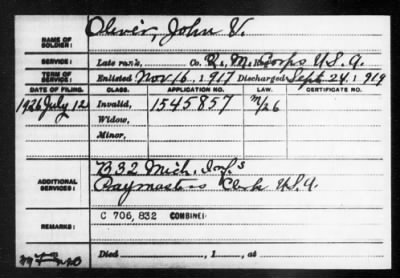 NAME OF SOLDIER: Oliver, John V.
SERVICE: Late rank, Co. Q. M. Corps U.S.A.
TERM OF SERVICE: Enlisted Nov 16, 1917 Discharged Sept. 24, 1919
DATE OF FILING. CLASS. APPLICATION NO. LAW. CERTIFICATE NO.
1926 July 12 Invalid, 1545857
Widow,
Minor,
ADDITIONAL SERVICES: 32 Mich. Inf.
Paymasters Clerk U.S.A.
REMARKS: C 706,832 COMBINE:
Died , 1 , at